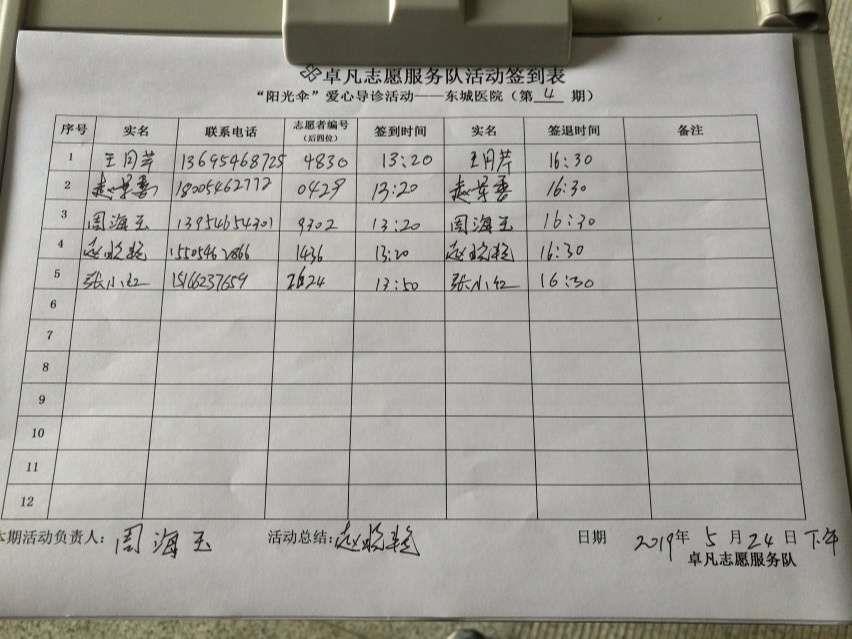 卓凡志愿服务队活动签到表
“阳光伞”爱心导诊活动——东城医院（第 4 期）
序号 实名 联系电话 志愿者编号（后四位） 签到时间 实名 签退时间 备注
1 王月芹 13695468725 4830 13:20 王月芹 16:30
2 赵景香 18005462772 0429 13:20 赵景香 16:30
3 周海玉 13954654301 9302 13:20 周海玉 16:30
4 赵晓艳 15505462866 1436 13:20 赵晓艳 16:30
5 张小红 15166237659 2624 13:50 张小红 16:30
6
7
8
9
10
11
12
本期活动负责人：周海玉 活动总结：赵晓艳 日期 2019年 5 月 24 日 下午
卓凡志愿服务队